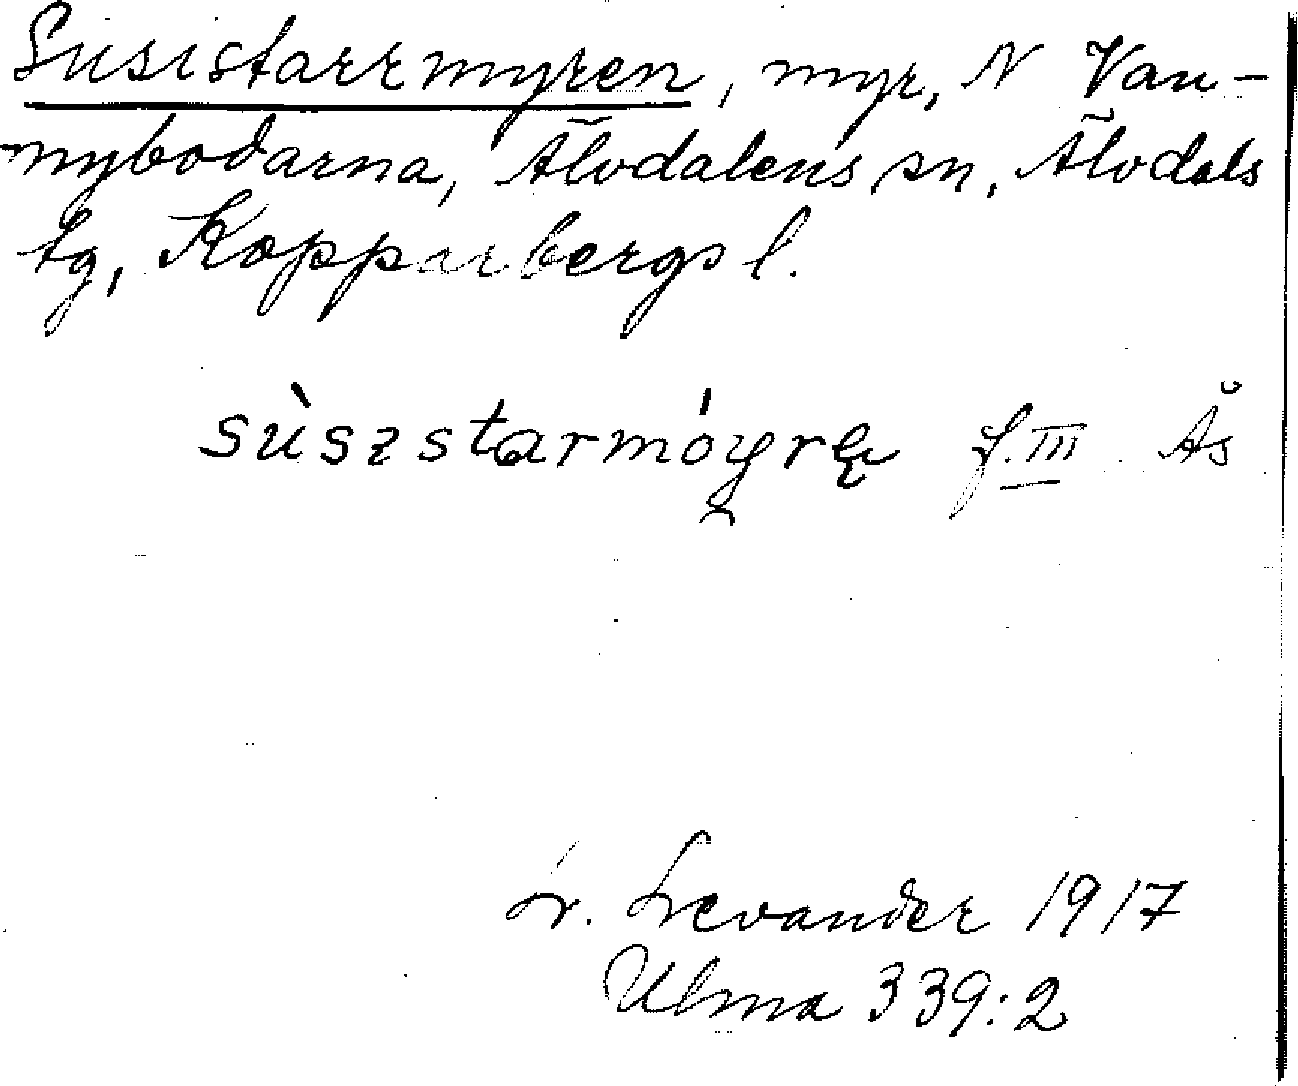 Susistarrmyren, myr, N Van-
nybodarna, Älvdalens sn, Älvdals
tg, Kopparbergs l.
sùsɪstarmóyrę f. III Ås
L. Levander 1917
Ulma 339:2